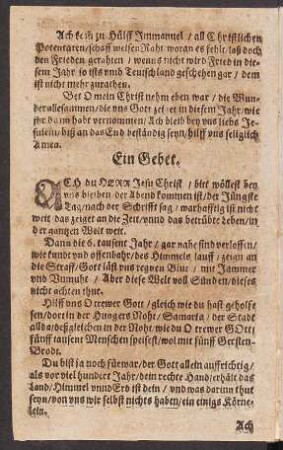 Ach keiß zu Hülff Jmmanuel / all Christlichen
Potentaten / schaff weisen Raht woran es fehlt / laß doch
den Frieden gerahten / wenns nicht wird Fried in die-
sem Jahr / so ists vmb Teutschland geschehen gar / dem
ist nicht mehr zurathen.
Bet O mein Christ nehm eben war / die Wun-
der allesammen / die vns Gott zeiget in diesem Jahr / wie
ihr dann habt vernommen / Ach bleib bey vns liebs Je-
sulein / biß an das End beständig seyn / hilff vns seliglich
Amen.
Ein Gebet.
ACH du HERR Jesu Christ / bitt wöllest bey
vns bleiben der Abend kommen ist / der Jüngste
Tag / nach der Schrifft sag / warhafftig ist nicht
weit das zeiget an die Zeit / vnnd das betrübte Leben / in
der gantzen Welt weit.
Dann die 6. tausent Jahr / gar nahe sind verloffen /
wie kundt vnd offenbahr / des Himmels lauff / zeign an
die Straff / Gott läst vns regnen Blut / mit Jammer
vnd Vnmuht / Aber diese Welt voll Sünden / dieses
nicht achten thut.
Hilff vns O trewer Gott / gleich wie du hast geholf-
fen / dort in der Hungers Noht / Samaria / der Stadt
all da / deßgleichen in der Noht / wie du O trewer GOtt
fünff tausent Menschen speisest / wol mit fünff Gersten-
Brodt.
Du bist ja noch fürwar / der Gott allein auffrichtig /
als vor viel hundert Jahr / dein rechte Hand / erhält das
Land / Himmel vnnd Erd ist dein / vnd was darinn thut
seyn / von vns wir selbst nichts haben / ein einigs Körne-
lein.
Ach